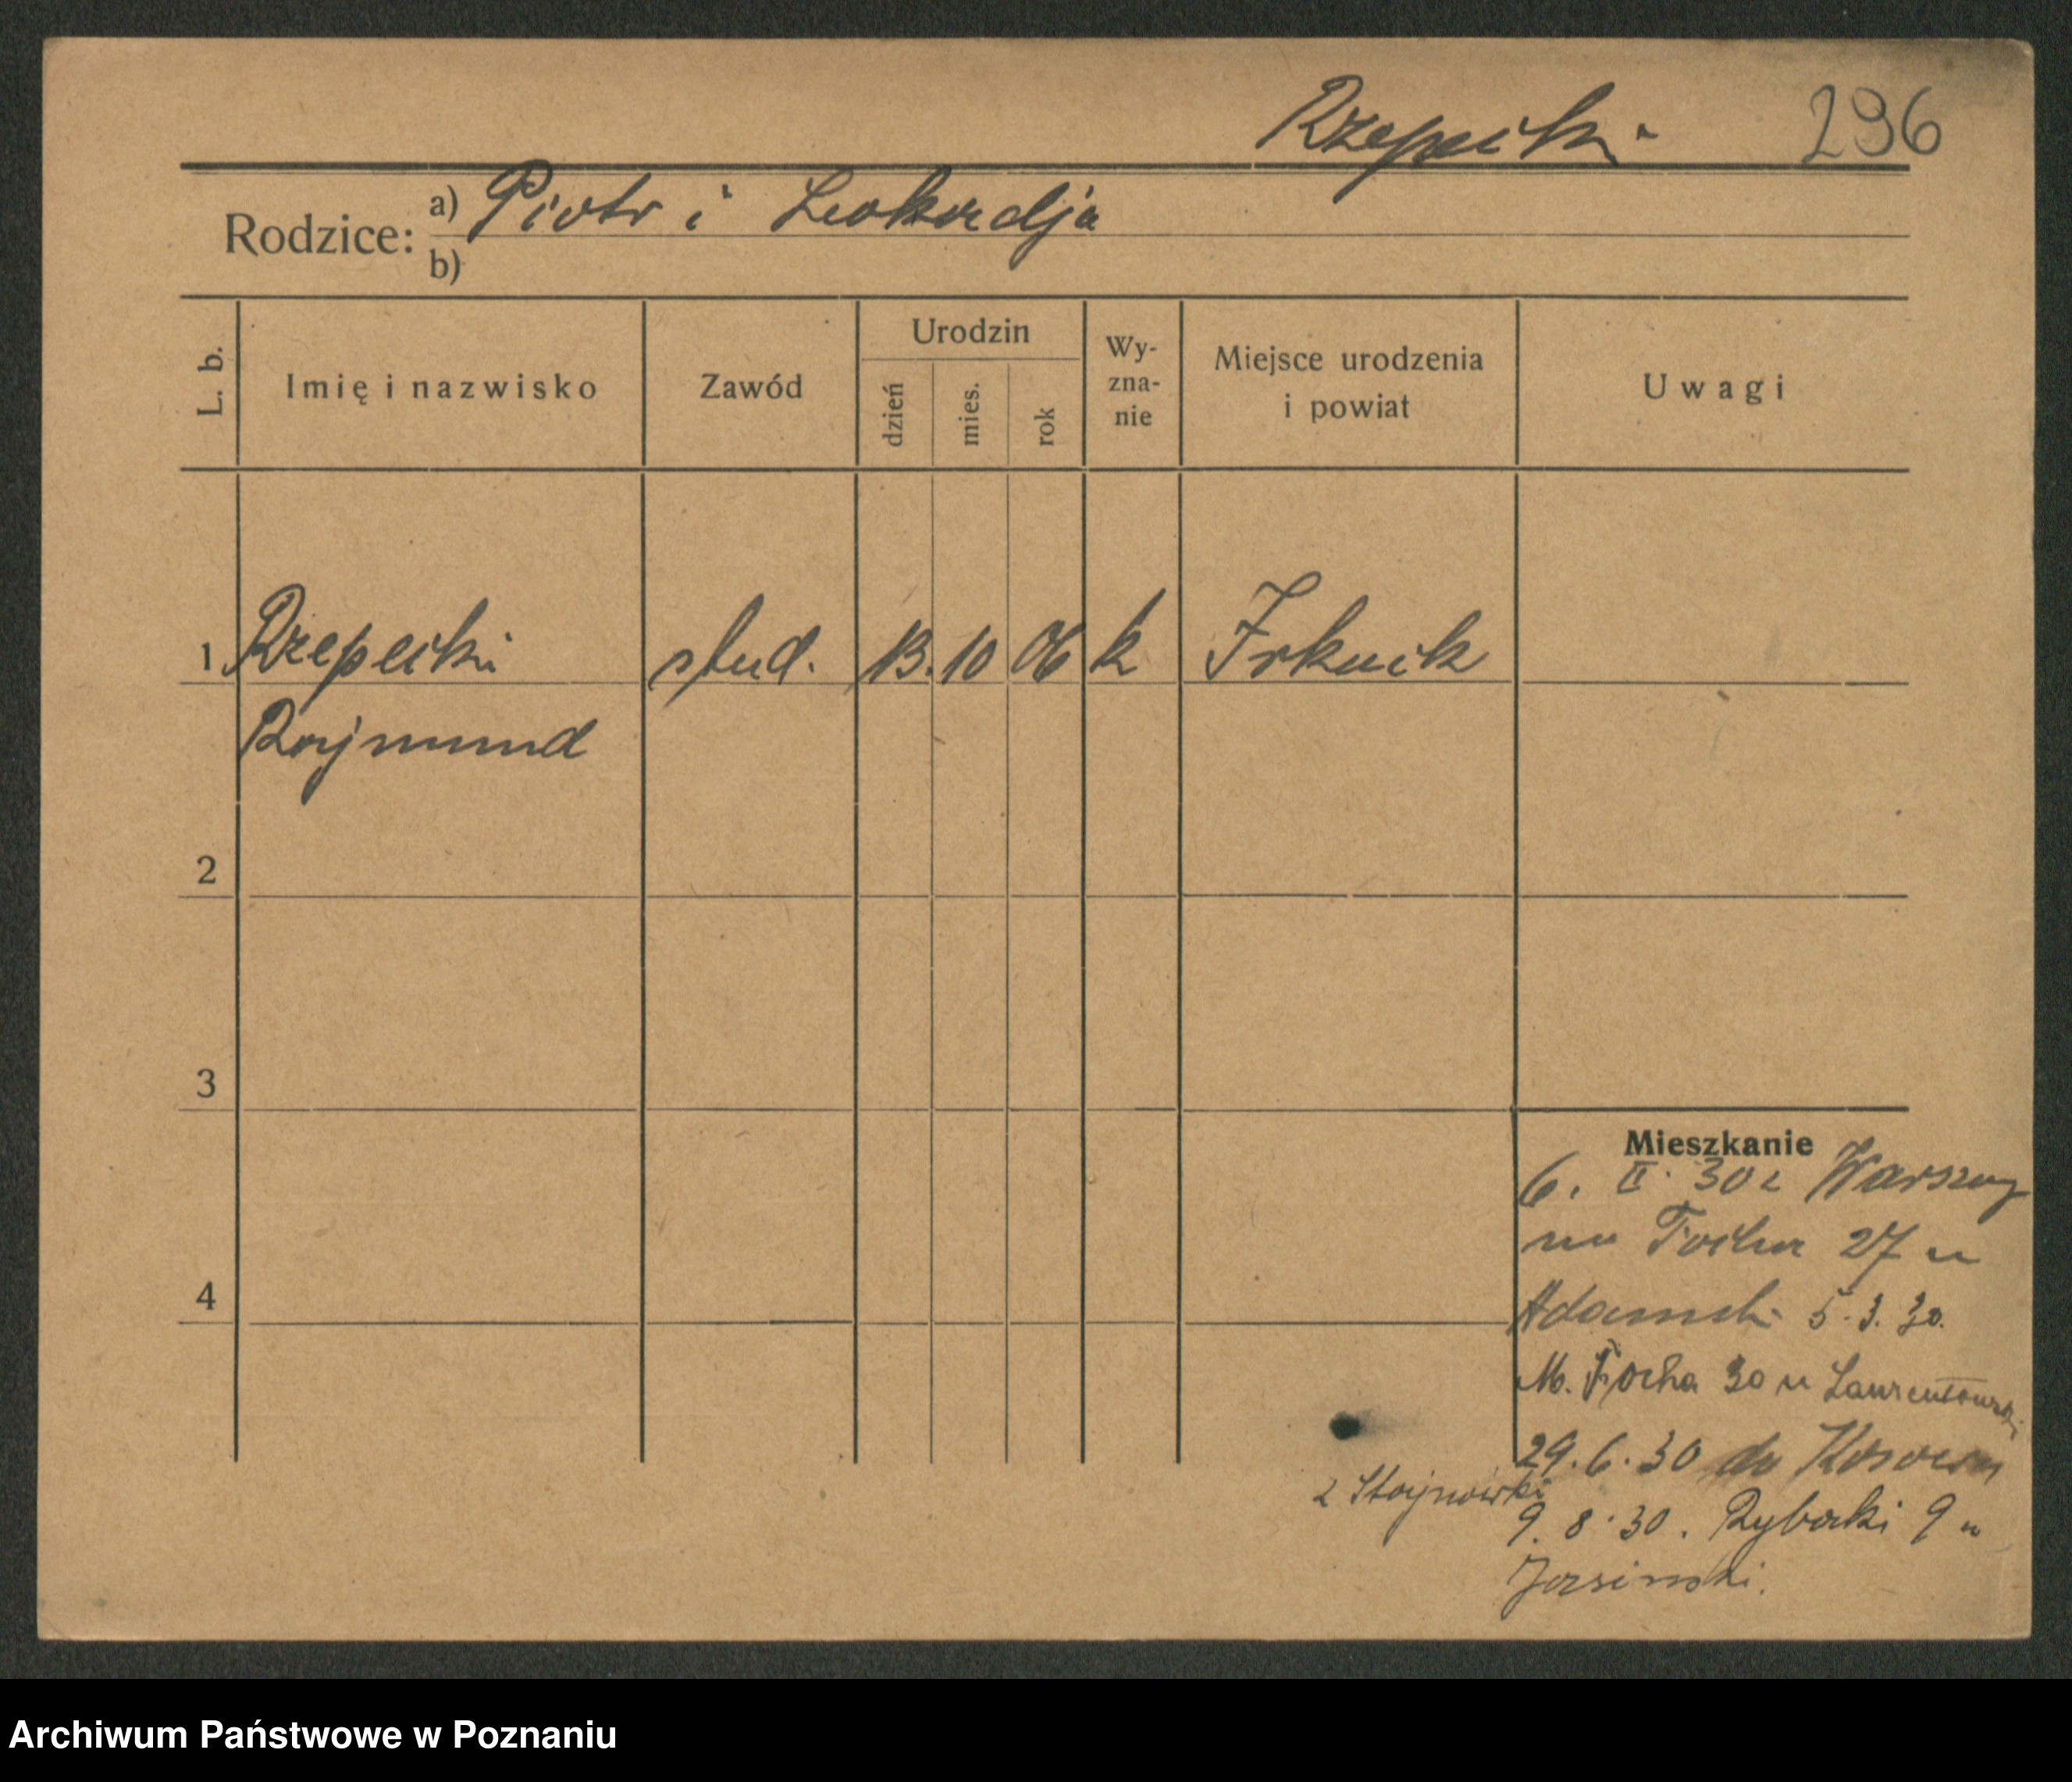 Rzepecki 296
Rodzice: a) Piotr i Leokadja
b)
L. b. Imię i nazwisko Zawód Urodzin dzień mies. rok Wy-zna-nie Miejsce urodzenia i powiat Uwagi
1 Rzepecki stud. 13. 10 06 k Irkuck
Rajmund
2
3
4
Mieszkanie
6. II. 30 z Warszawy
na Focha 27 u
Adamski 5.3.30.
M. Focha 30 u
29.6.30 do
z Stajnowski
9.8.30. Rybaki 9 u
Jasinski.
Archiwum Państwowe w Poznaniu